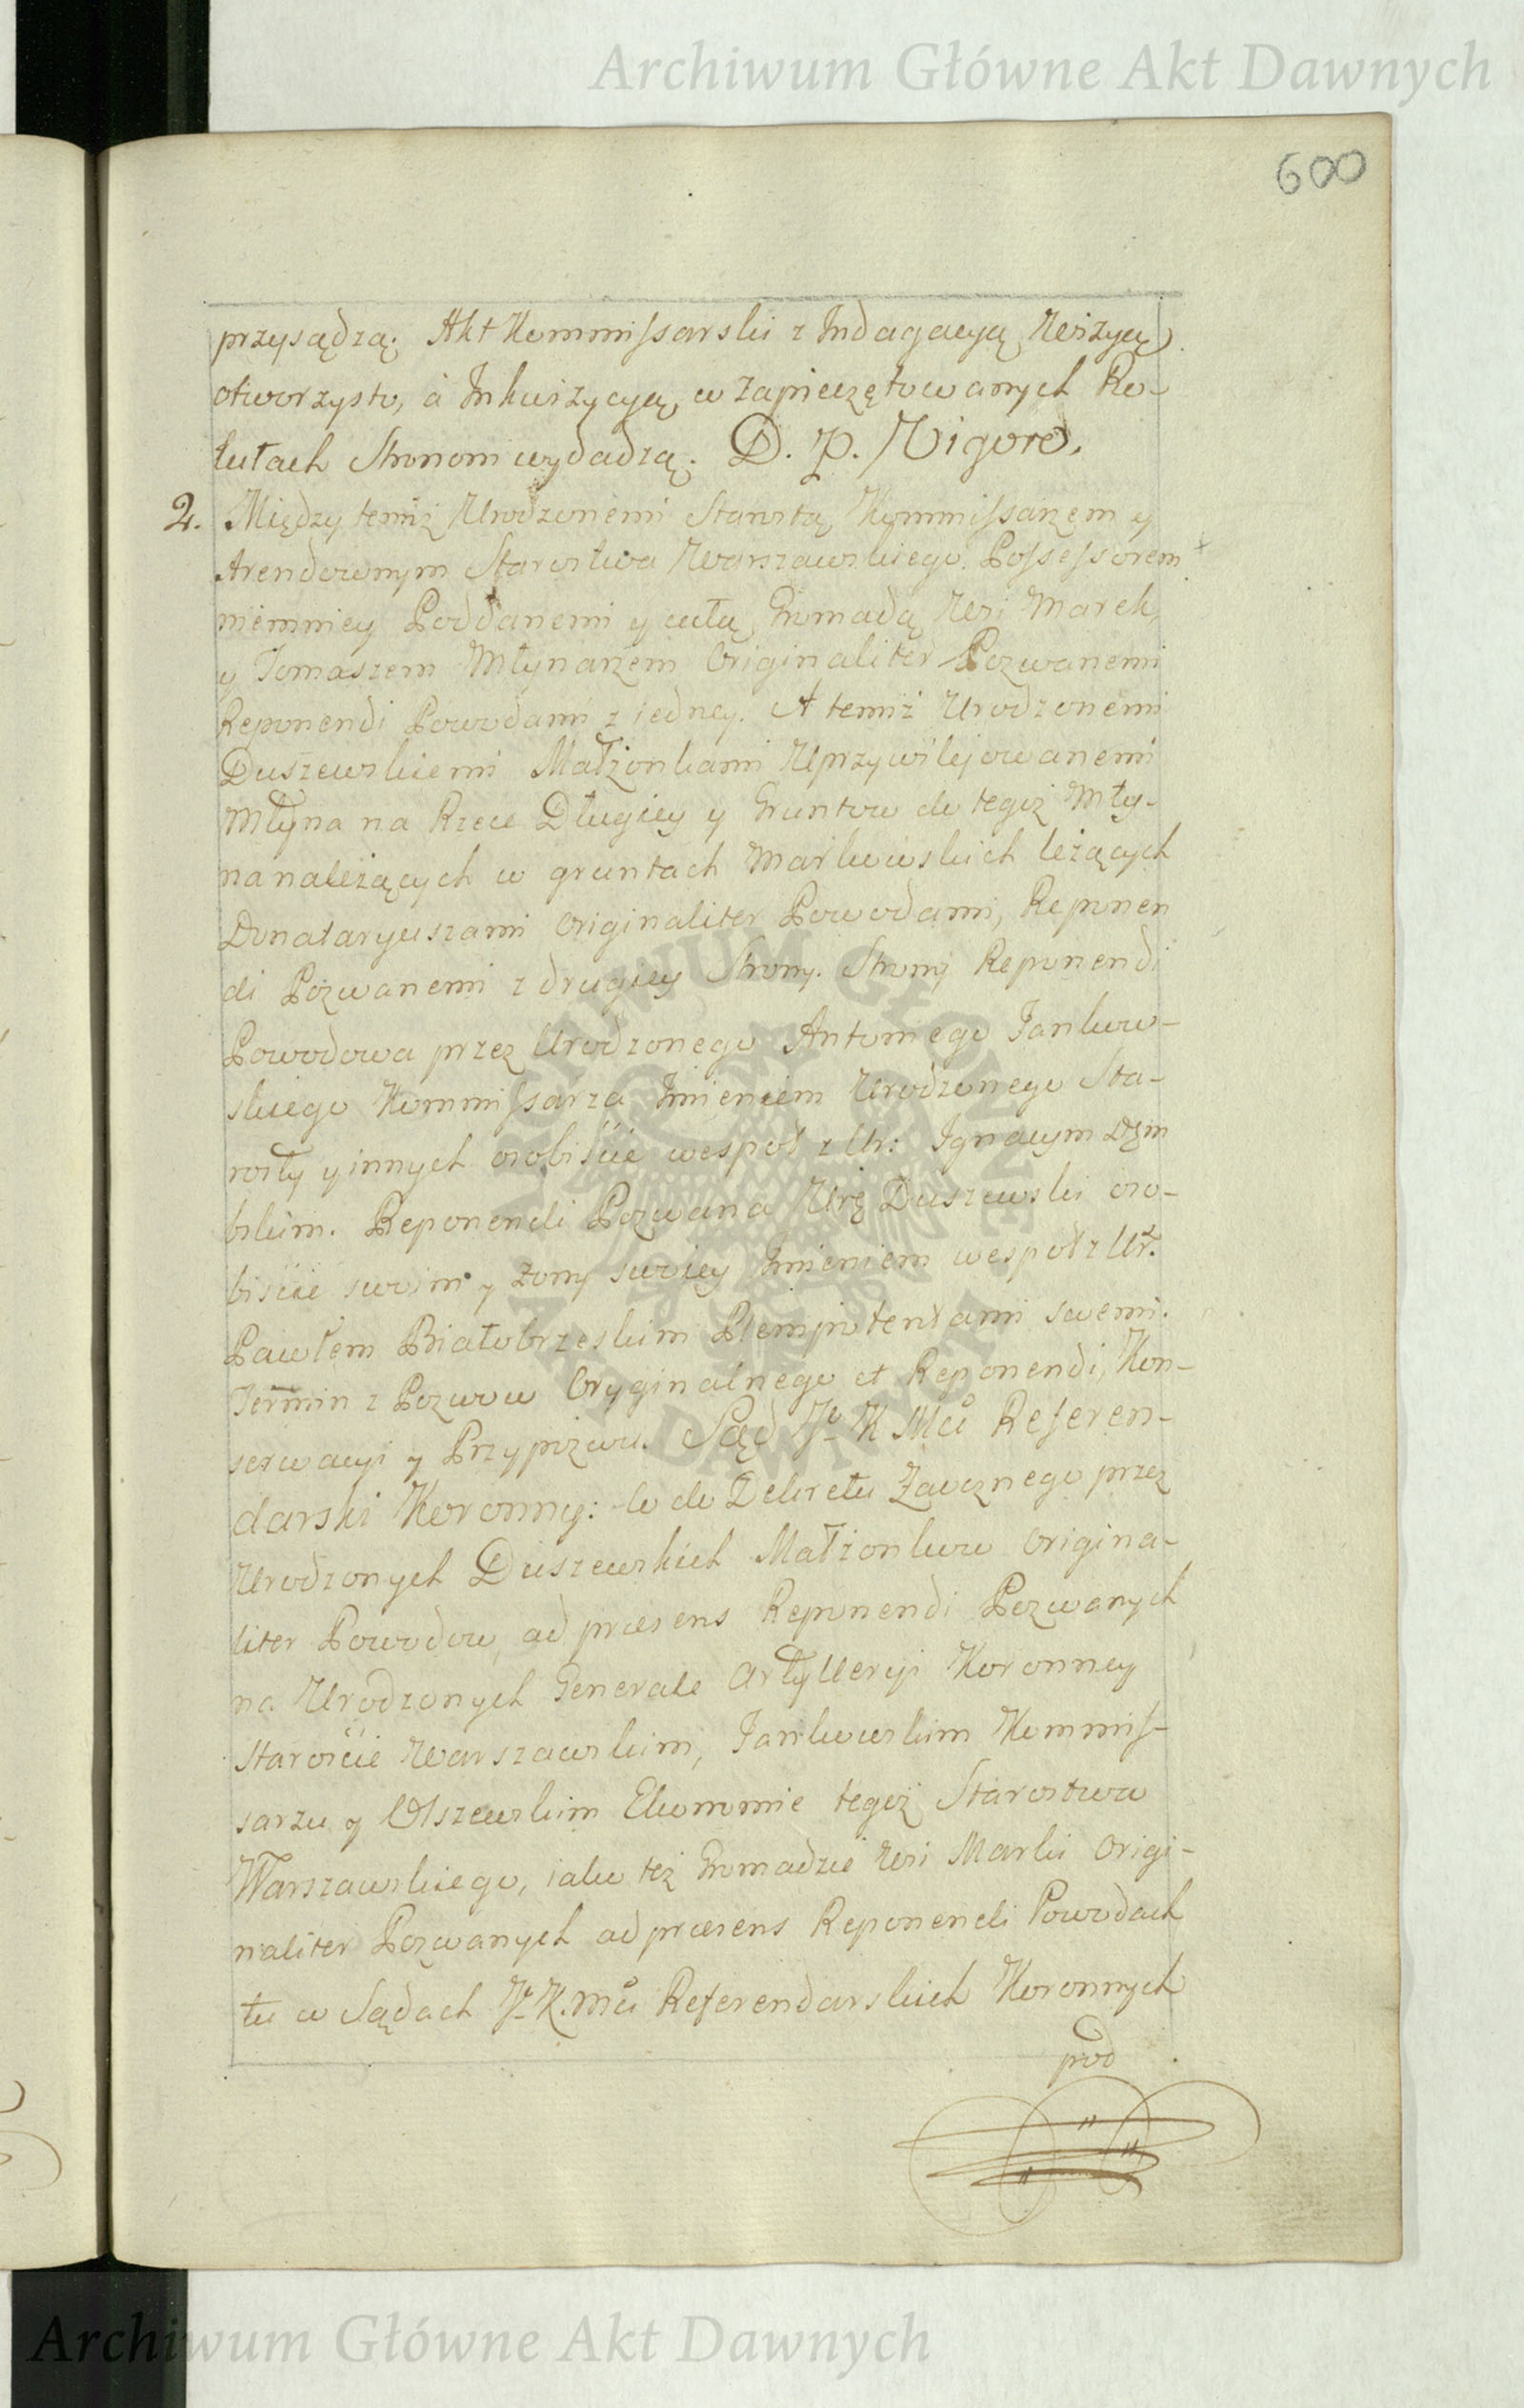 Archiwum Główne Akt Dawnych
600
przysądzą. Akt Kommissarski z Indagacyą Wizyą
otworzysto, á Inkwizycyą w zapieczętowanych Ro-
tułach Stronom wydadzą. D. p. Vigore.
2. Między temiż Urodzonemi Starostą, Kommissarzem y
Arendownym Starostwa Warszawskiego Possessorem
niemniey Poddanemi y całą Gromadą Wsi Marek,
y Tomaszem Młynarzem Originaliter Pozwanemi
Reponendi Powodami z iedney. A temiż Urodzonemi
Duszewskiemi Małżonkami Uprzywilejowanemi
Młyna na Rzece Długiey y Gruntow do tegoż Mły-
na należących w gruntach Markowskich leżących
Donataryuszami Originaliter Powodami, Reponen
di Pozwanemi z drugiey Strony. Strony Reponendi
Powodowa przez Urodzonego Antoniego Jankow-
skiego Kommissarza Imieniem Urodzonego Sta-
rosty y innych osobiście wespoł z Ur: Ignacym Dzm
bskim. Reponendi Pozwana Urę Duszewski oso-
biście swoim y Żony swoiey Imieniem wespoł z Ur.
Pawłem Białobrzeskim Plenipotentami swemi.
Termin z Pozwow Oryginalnego et Reponendi, Kon-
serwacyi y Przypozwu. Sąd Jo K Mci Referen-
darski Koronny: Co do Dekretu Zaocznego przez
Urodzonych Duszewskich Małżonkow Origina-
liter Powodow, ad præsens Reponendi Pozwanych
na Urodzonych Generale Artylleryi Koronney
Staroście Warszawskim, Jankowskim Kommis-
sarzu y Olszewskim Ekonomie tegoż Starostwa
Warszawskiego, iako też Gromadzie Wsi Marki Origi-
naliter Pozwanych ad præsens Reponendi Powodach
tu w Sądach Jo K. Mci Referendarskich Koronnych
pod
ARCHIWUM GŁÓWNE
AKT DAWNYCH
Archiwum Główne Akt Dawnych